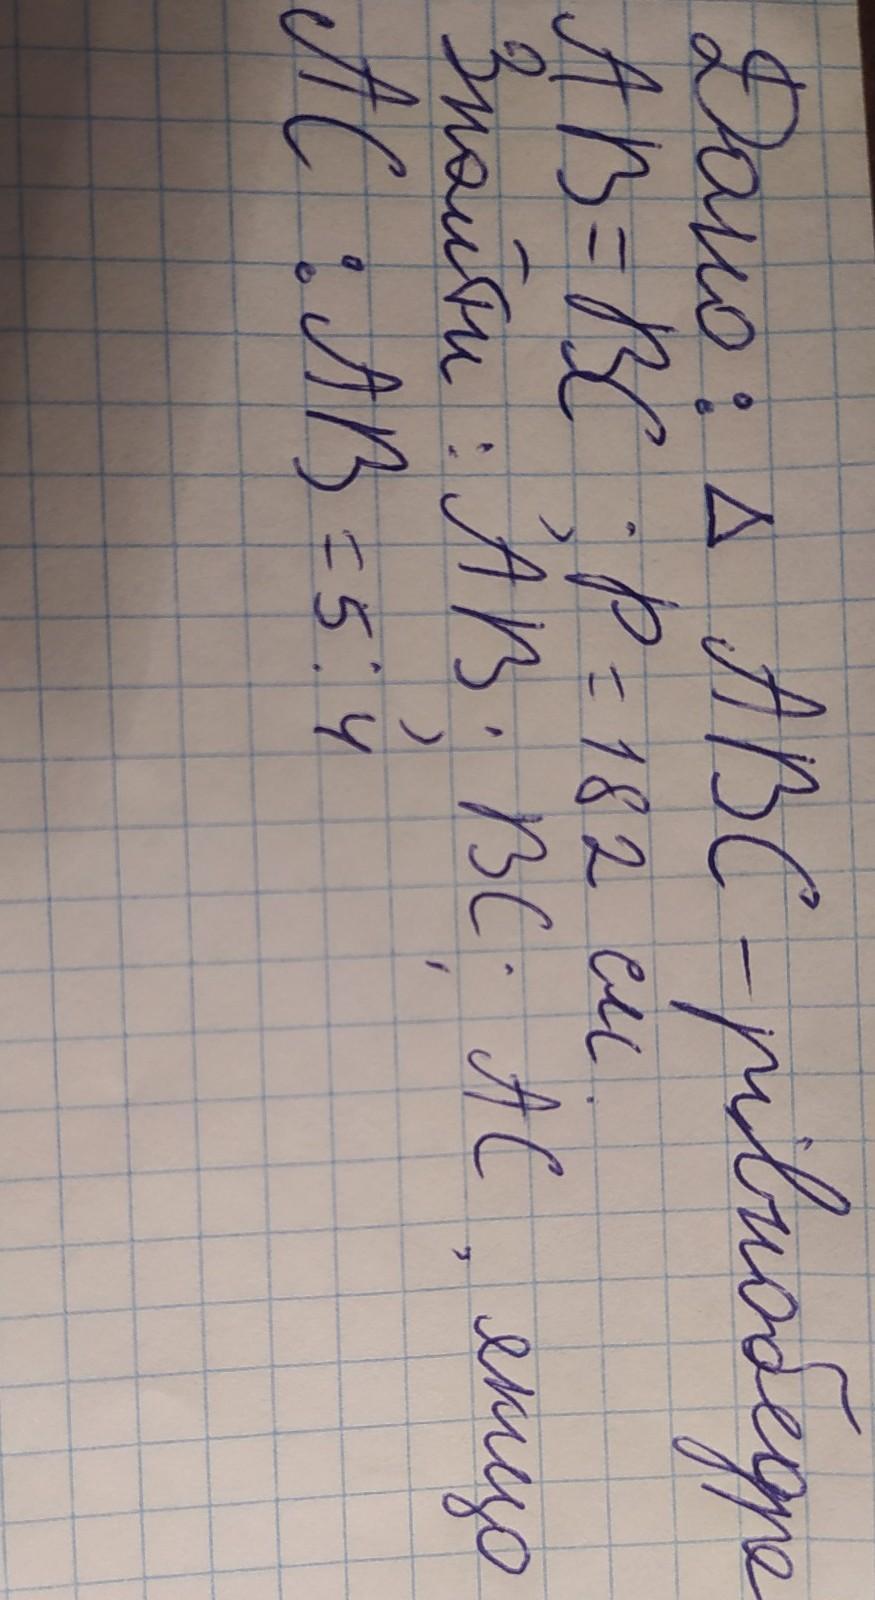 Дано: Δ ABC – рівнобедре
AB = BC; P = 182 см.
Знайти: AB; BC; AC, якщо
AC : AB = 5 : 4